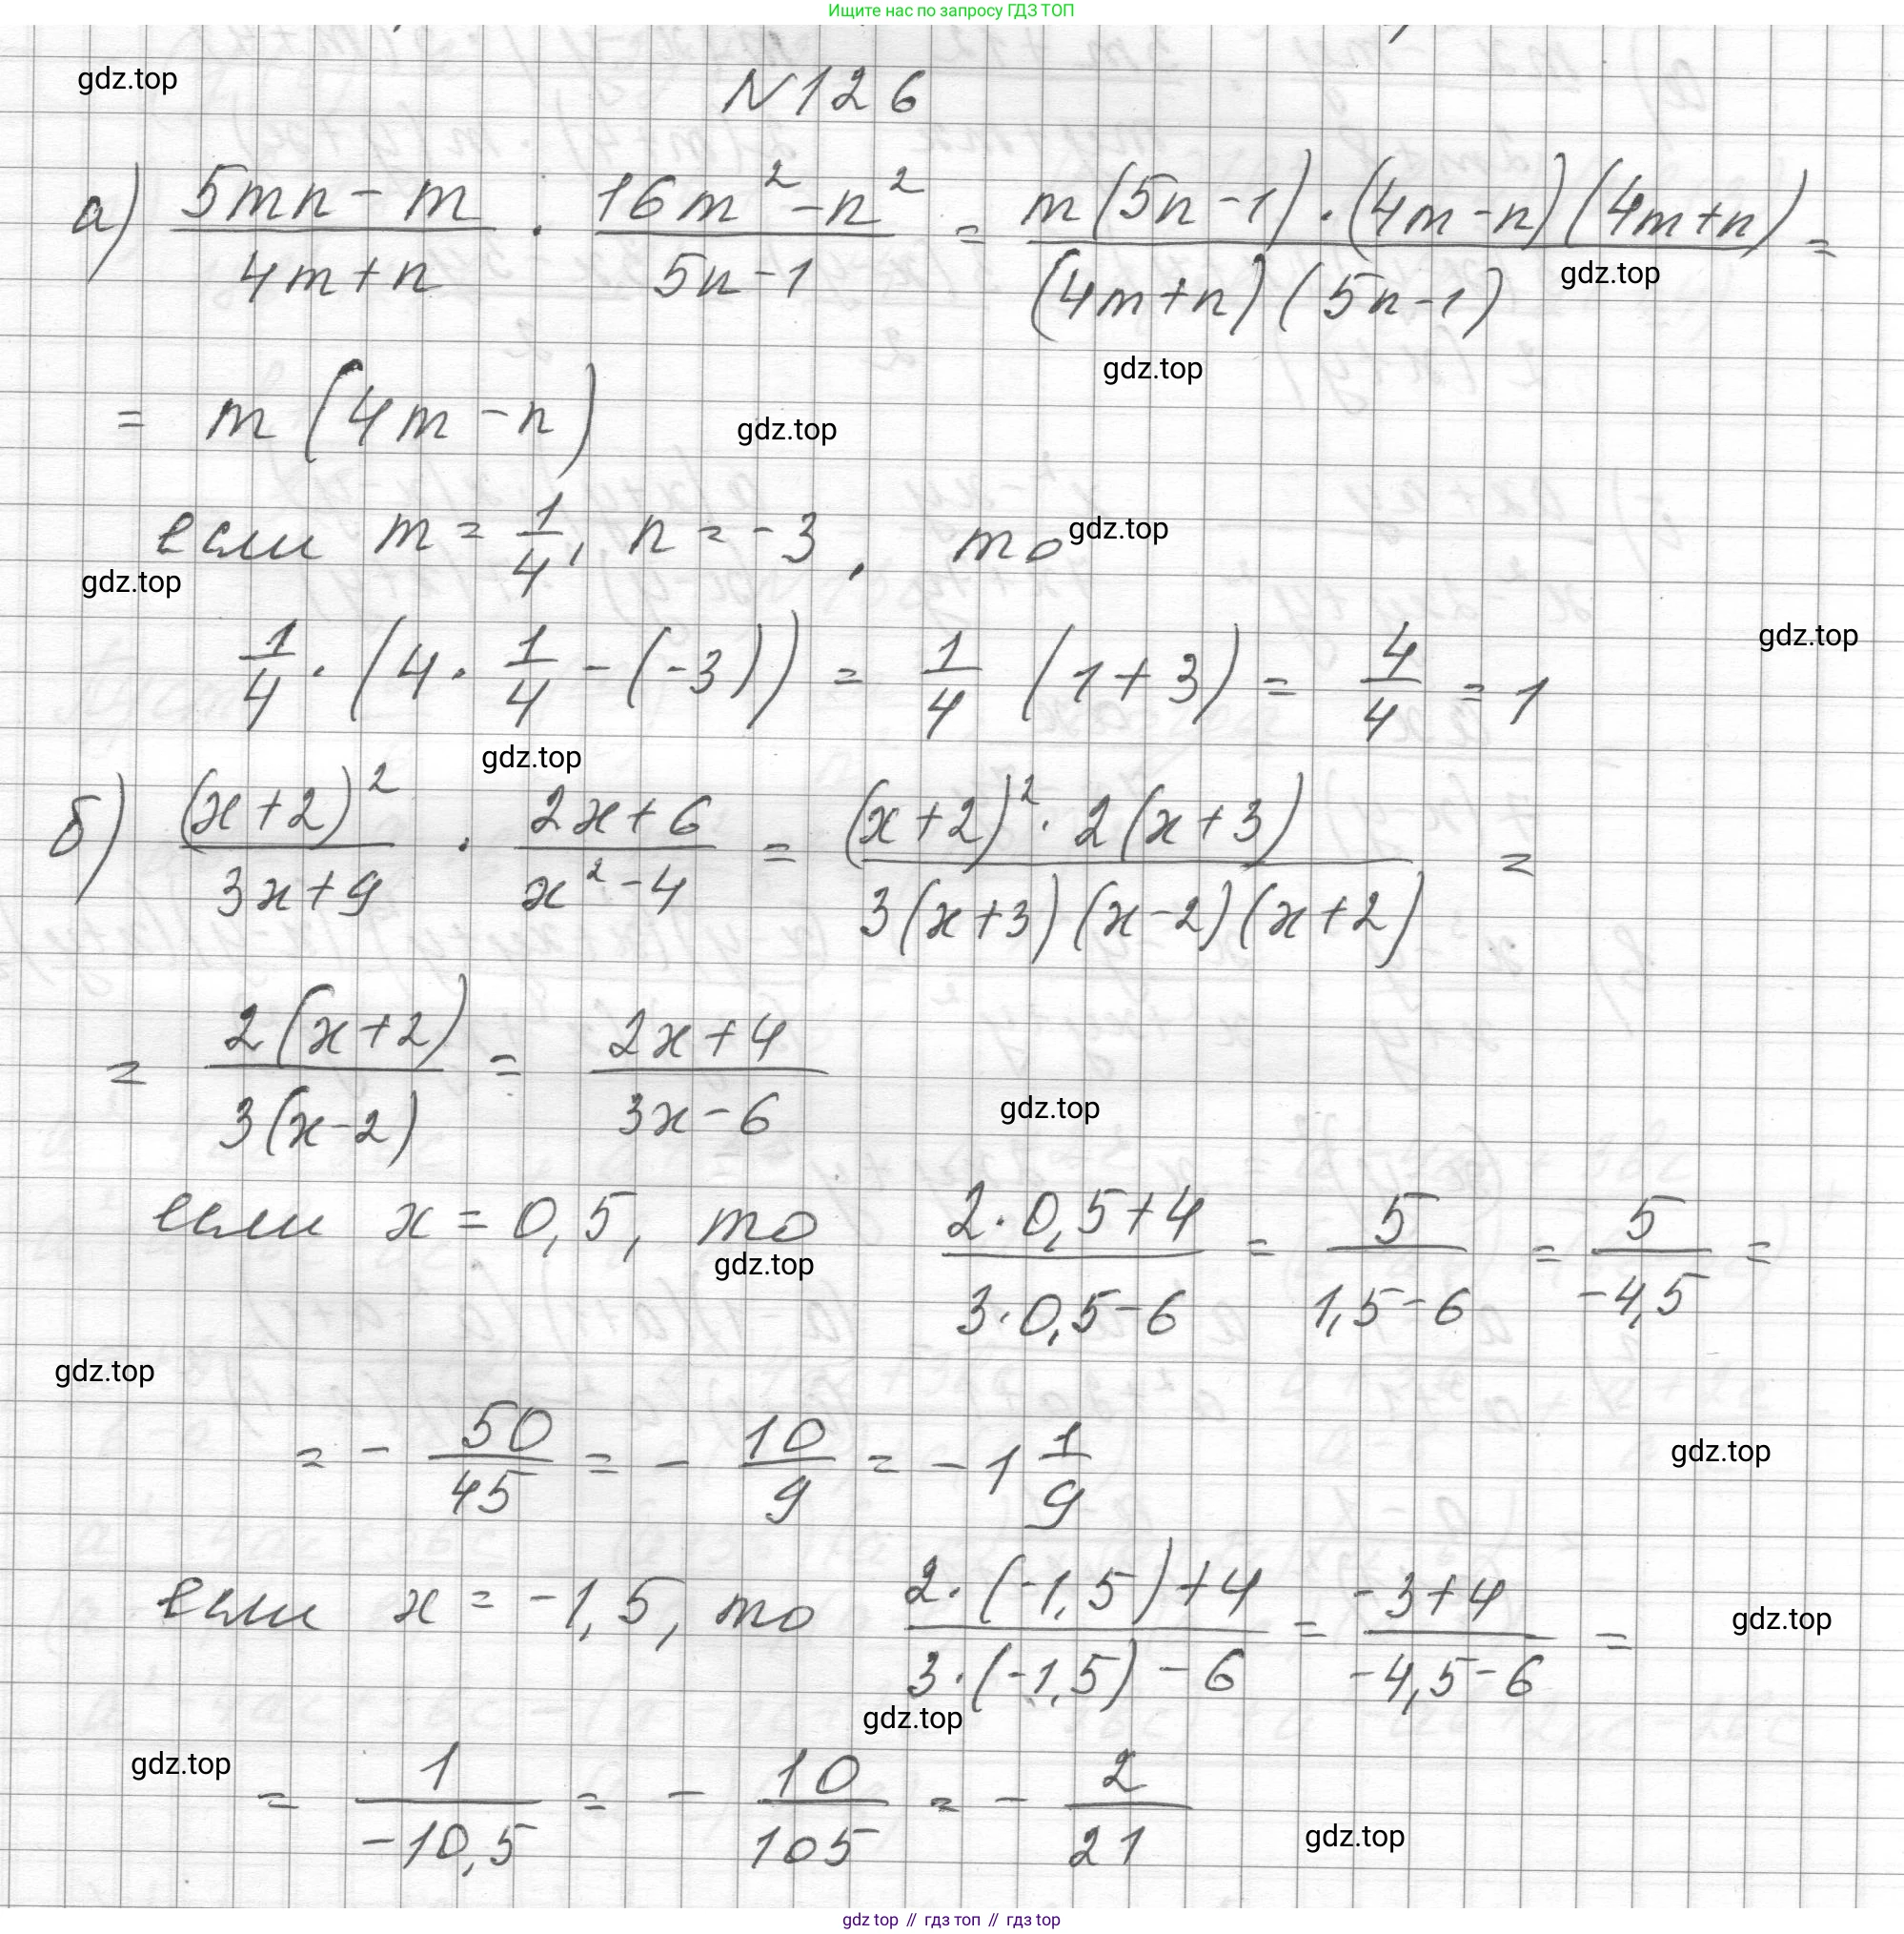 Ищите нас по запросу ГДЗ ТОП
gdz.top
N126
а) (5mn - m)/(4m+n) · (16m² - n²)/(5n-1) = (m(5n-1)·(4m-n)(4m+n))/((4m+n)(5n-1)) =
gdz.top
gdz.top
= m(4m-n)
gdz.top
если m = 1/4, n = -3, то
gdz.top
gdz.top
gdz.top
1/4 · (4 · 1/4 - (-3)) = 1/4 (1+3) = 4/4 = 1
gdz.top
б) (x+2)²/(3x+9) · (2x+6)/(x²-4) = ((x+2)² · 2(x+3))/(3(x+3)(x-2)(x+2)) =
= 2(x+2)/3(x-2) = (2x+4)/(3x-6)
gdz.top
если x = 0,5, то (2·0,5+4)/(3·0,5-6) = 5/(1,5-6) = 5/(-4,5) =
gdz.top
gdz.top
= - 50/45 = - 10/9 = -1 1/9
gdz.top
если x = -1,5, то (2·(-1,5)+4)/(3·(-1,5)-6) = (-3+4)/(-4,5-6) =
gdz.top
gdz.top
gdz.top
= 1/(-10,5) = - 10/105 = - 2/21
gdz.top
gdz top // гдз топ // гдз top